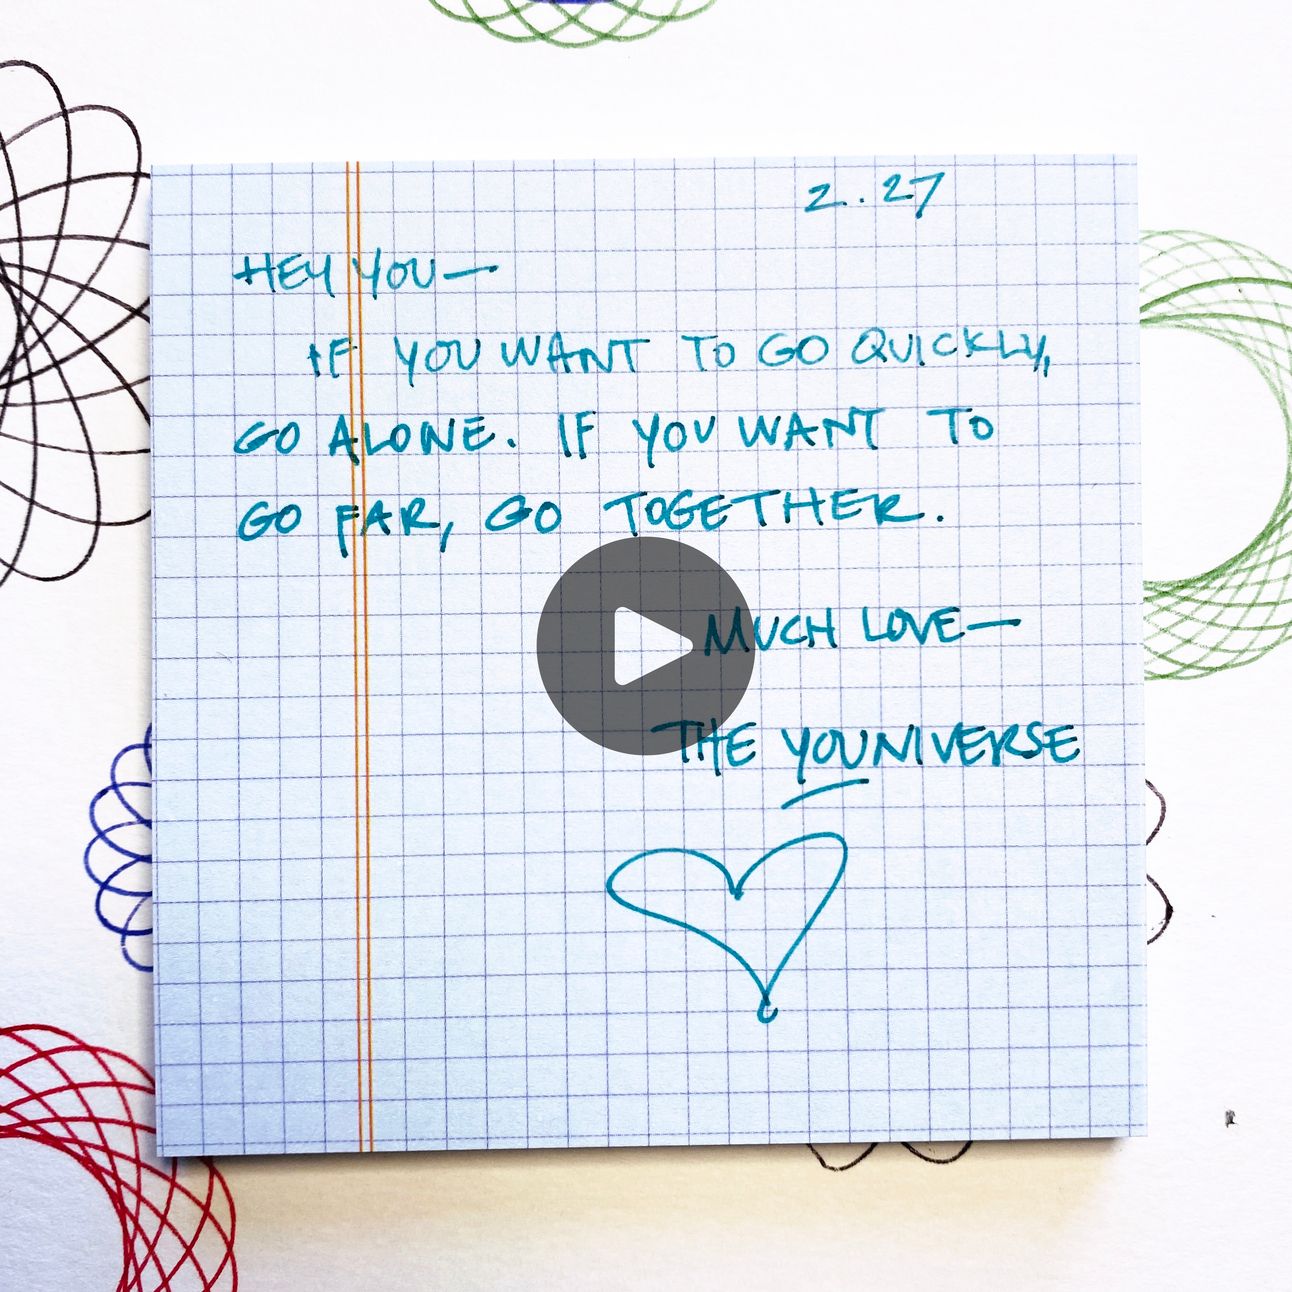 2.27
HEY YOU—
IF YOU WANT TO GO QUICKLY,
GO ALONE. IF YOU WANT TO
GO FAR, GO TOGETHER.
MUCH LOVE—
THE YOUNIVERSE